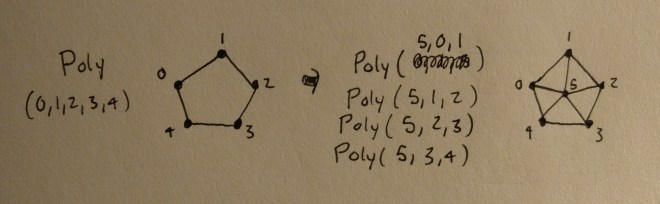 Poly
(0,1,2,3,4)
0
1
2
3
4
⇒
5,0,1
Poly( )
Poly(5,1,2)
Poly(5,2,3)
Poly(5,3,4)
0
1
2
3
4
5